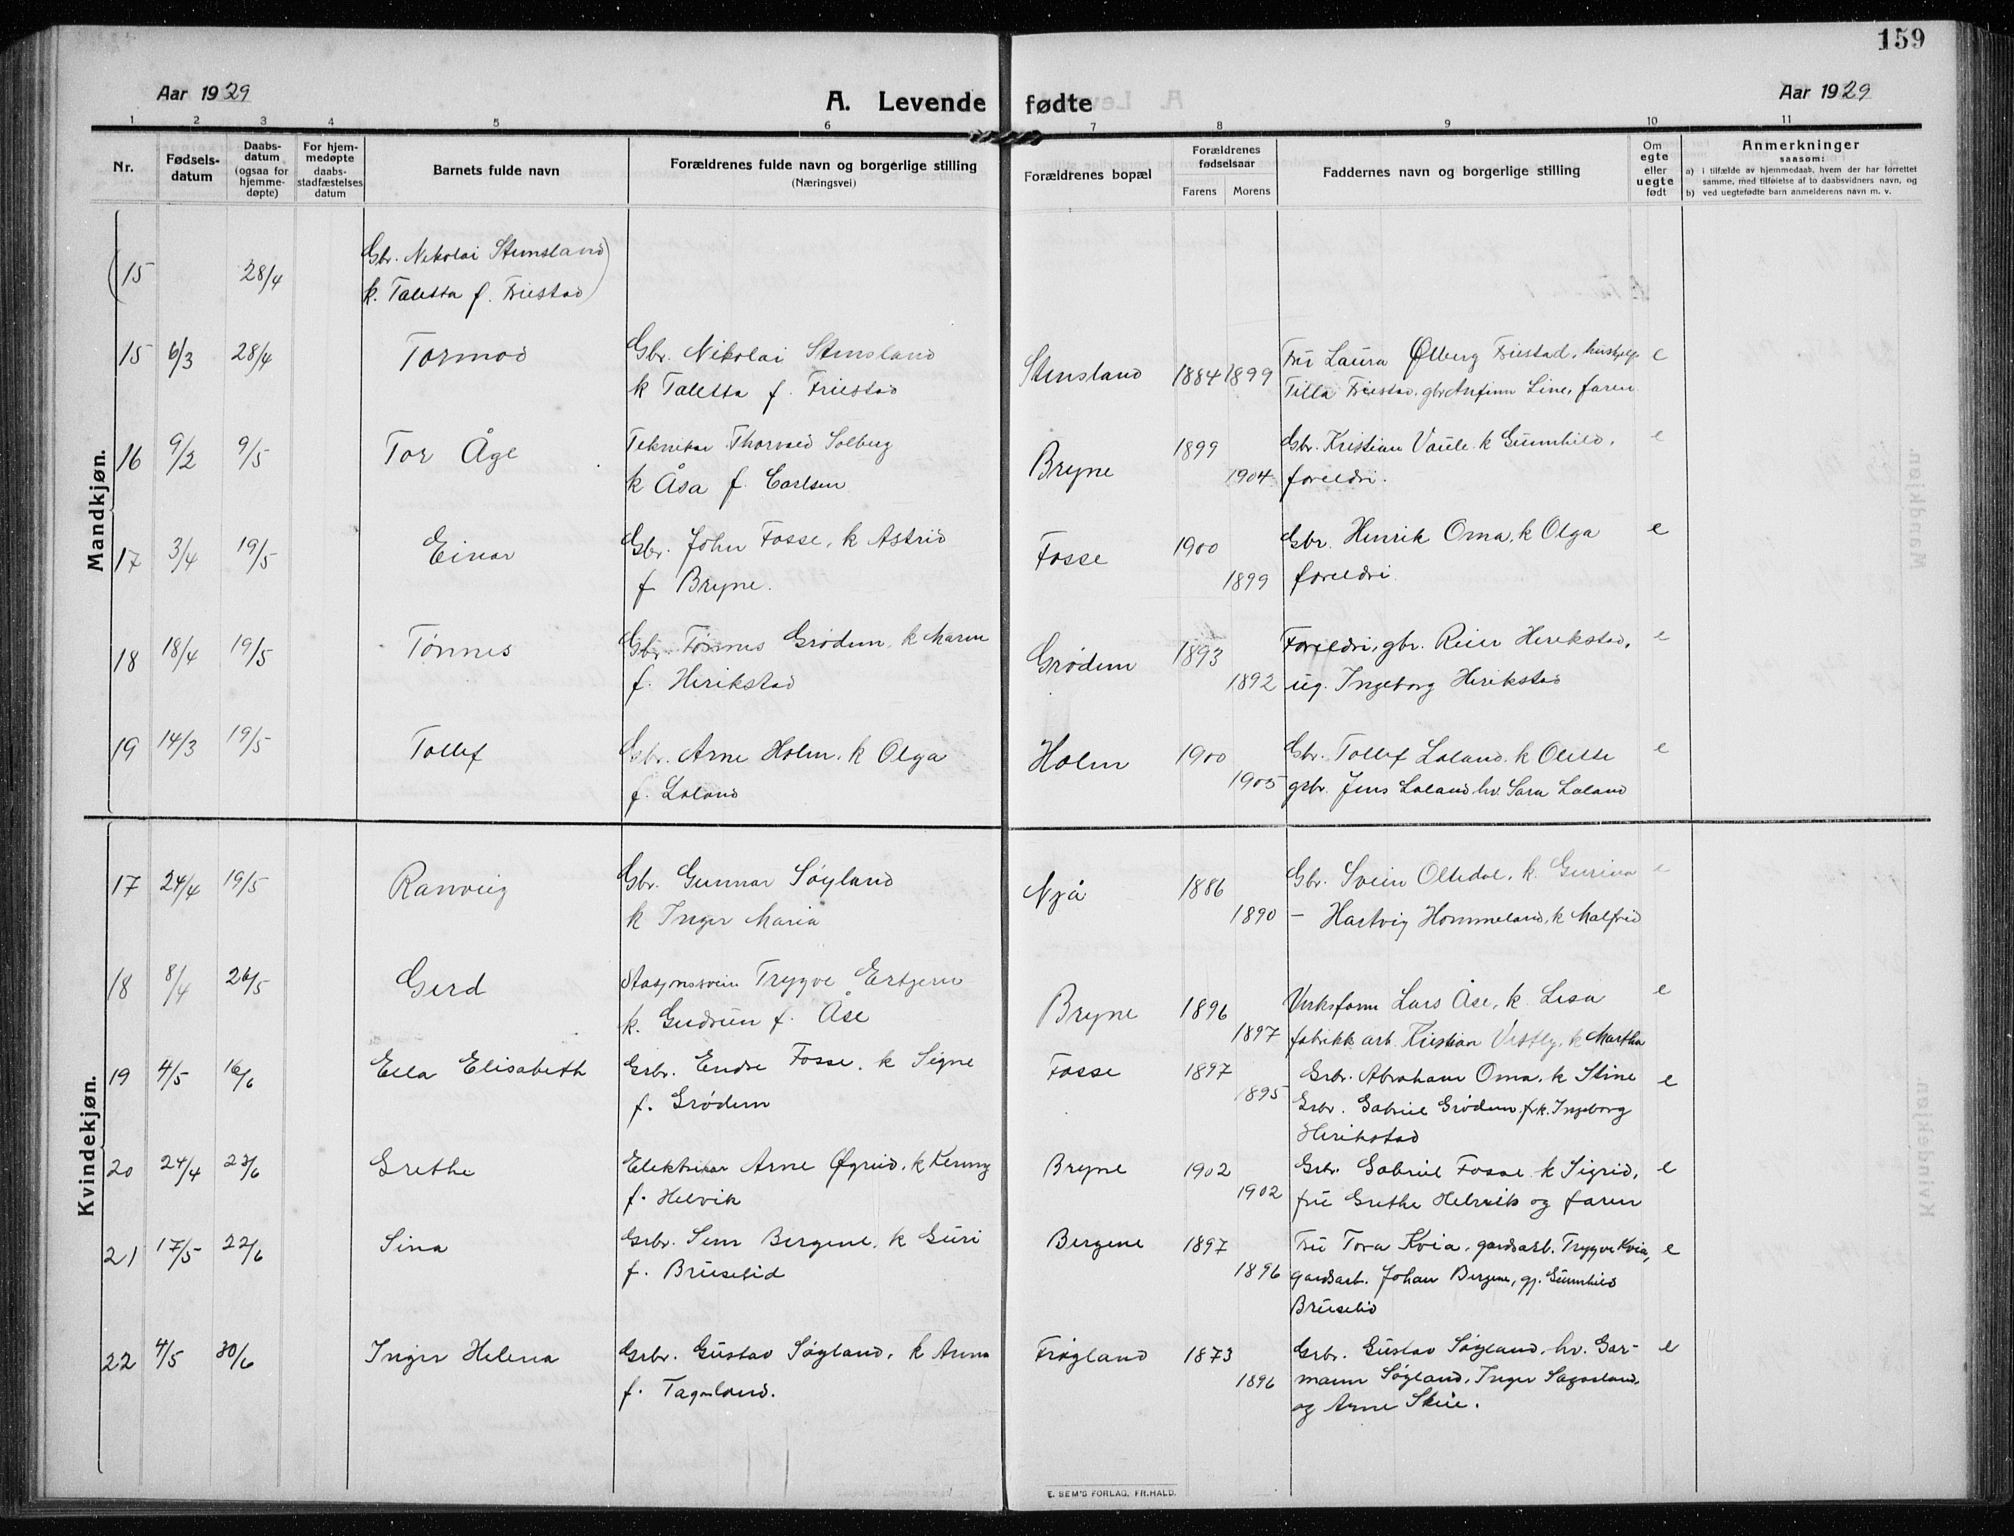 159
Aar 1929
A. Levende fødte
Aar 1929
1 2 3 4 5 6 7 8 9 10 11
Nr.
Fødsels-
datum
Daabs-
datum
(ogsaa for
hjemme-
døpte)
For hjem-
medøpte
daabs-
stadfæstelses
datum
Barnets fulde navn
Forældrenes fulde navn og borgerlige stilling
(Næringsvei)
Forældrenes bopæl
Forældrenes
fødselsaar
Farens Morens
Faddernes navn og borgerlige stilling
Om
egte
eller
uegte
født
Anmerkninger
saasom:
a) i tilfælde av hjemmedaab, hvem der har forrettet
samme, med tilføielse af to daabsvidners navn, og
b) ved uegtefødte barn anmelderens navn m. v.
Mandkjøn.
(15 28/4 Gbr. Nikolai Stensland)
k. Taletta f. Friestad)
15 6/3 28/4 Tormod Gbr. Nikolai Stensland Stensland 1884 1899 Fru Laura Ølberg Friestad, hushjelp e
k Taletta f. Friestad Tilla Friestad, gbr Anfinn Line, faren
16 9/2 9/5 Tor Åge Tekniker Thorvald Solberg Bryne 1899 Gbr. Kristian Vaule k Gunnhild, e
k Åsa f. Carlsen 1904 foreldri.
17 3/4 19/5 Einar Gbr. John Fosse, k Astrid Fosse 1900 Gbr. Henrik Oma, k Olga e
f. Bryne. 1899 foreldri
18 18/4 19/5 Tønnes Gbr. Tønnes Grødem, k Maren Grødem 1893 Foreldri, gbr. Reier Herikstad, e
f. Herikstad 1892 ug. Ingeborg Herikstad
19 14/3 19/5 Tollef Gbr. Arne Holm, k Olga Holm 1900 Gbr. Tollef Laland, k Olette e
f. Laland 1905 grbr. Jens Laland, hv. Sara Laland
Kvindekjøn.
17 24/4 19/5 Ranveig Gbr. Gunnar Søyland Njå 1886 Gbr. Svein Oltedal, k. Gurina e
k Inger Maria 1890 – Hartvig Hommeland, k Malfrid
18 8/4 26/5 Gerd Stasjonssvein Trygve Ertjern Bryne 1896 Verksform Lars Åse, k. Lisa e
k. Gudrun f. Åse 1897 fabrikk arb. Kristian Vestly, k Martha
19 4/5 16/6 Ella Elisabeth Grbr. Endre Fosse, k Signe Fosse 1897 Grbr. Abraham Oma, k Stine e
f. Grødem 1895 Grbr. Gabriel Grødem, frk. Ingeborg
Herikstad
20 24/4 23/6 Grethe Elektriker Arne Øgreid, k Kenny Bryne 1902 Grbr. Gabriel Fosse k Sigrid, e
f. Helvik 1902 fru Grethe Helvik og faren
21 17/5 22/6 Sina Grbr. Sem Bergene, k Guri Bergene 1897 Fru Tora Kvia, gardsarb. Trygve Kvia, e
f. Bruselid 1896 gardsarb. Johan Bergene, gj. Gunnhild
Bruselid
22 4/5 30/6 Inger Helena Grbr. Gustav Søyland, k Anna Frøyland 1873 Grbr. Gustav Søyland, hv. Gar- e
f. Tagaland. 1896 mann Søyland, Inger
og Arne Skeie.
E. SEM'S FORLAG, FR.HALD.